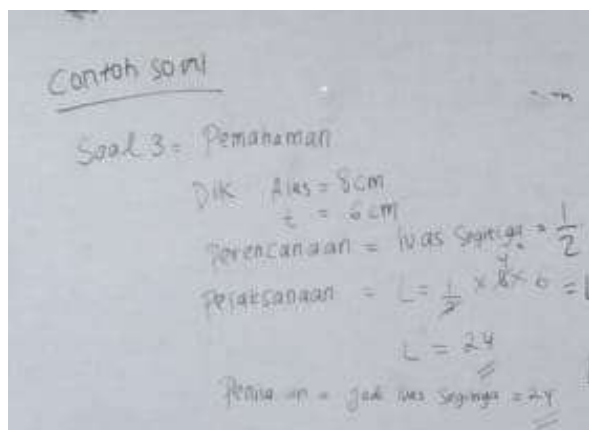 Contoh soal
Soal 3 = Pemahaman
DIK Alas = 8cm
t = 6cm
Perencanaan = luas segitiga = 1/2
Pelaksanaan = L = 1/2 × 8 × 6 =
L = 24
jadi luas segitiga = 24